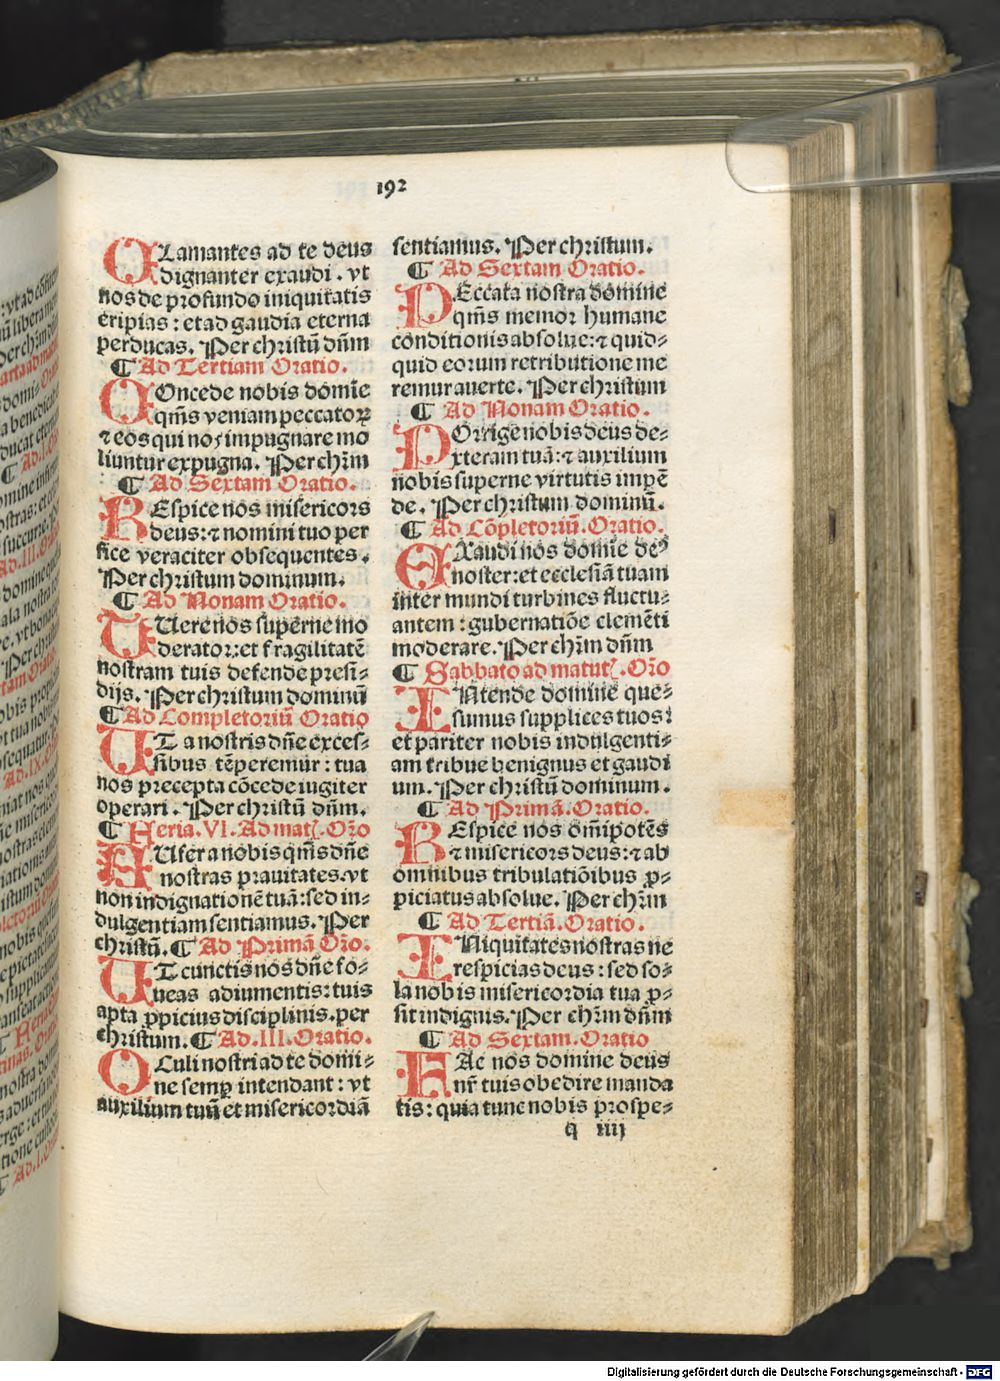 192
CLamantes ad te deus
dignanter exaudi . vt
nos de profundo iniquitatis
eripias : et ad gaudia eterna
perducas. Per christū dn̄m
¶ Ad Tertiam Oratio.
COncede nobis domīe
qm̄s veniam peccatoꝝ
⁊ eos qui nos impugnare mo
liuntur expugna. Per chr̄m
¶ Ad Sextam Oratio.
REspice nos misericors
deus: ⁊ nomini tuo per
fice veraciter obsequentes .
Per christum dominum.
¶ Ad Nonam Oratio.
TUere nos superne mo
derator: et fragilitatē
nostram tuis defende presi⸗
dijs. Per christum dominū
¶ Ad Completoriū Oratio
UT a nostris dn̄e exces⸗
sibus tēperemur : tua
nos precepta cōcede iugiter
operari . Per christū dn̄m.
¶ Feria. VI. Ad mat̉. Or̄o
AUfer a nobis qm̄s dn̄e
nostras prauitates. vt
non indignationē tuā: sed in⸗
dulgentiam sentiamus. Per
christū. ¶ Ad Primā Or̄o.
UT cunctis nos dn̄e fo⸗
ueas adiumentis: tuis
apta ꝓpicius disciplinis. per
christum. ¶ Ad. III. Oratio.
OCuli nostri ad te domi⸗
ne semꝑ intendant : vt
auxilium tuū et misericordiā
sentiamus. Per christum.
¶ Ad Sextam Oratio.
PEccata nostra domine
qm̄s memor humane
conditionis absolue: ⁊ quid⸗
quid eorum retributione me
remur auerte. Per christum
¶ Ad Nonam Oratio.
POrrige nobis deus de⸗
xteram tuā: ⁊ auxilium
nobis superne virtutis impē
de. Per christum dominū.
¶ Ad Cōpletoriū. Oratio.
EXaudi nos domīe deꝰ
noster: et ecclesiā tuam
inter mundi turbines fluctu⸗
antem : gubernatiōe clemēti
moderare. Per chr̄m dn̄m
¶ Sabbato ad matut̉. Or̄o
INtende domine que⸗
sumus supplices tuos:
et pariter nobis indulgenti⸗
am tribue benignus et gaudi
um. Per christū dominum.
¶ Ad Primā. Oratio.
REspice nos om̄ipotēs
⁊ misericors deus: ⁊ ab
omnibus tribulatiōibus ꝓ⸗
piciatus absolue. Per chr̄m
¶ Ad Tertiā. Oratio.
INiquitates nostras ne
respicias deus : sed so⸗
la nobis misericordia tua ꝓ⸗
sit indignis. Per chr̄m dn̄m
¶ Ad Sextam. Oratio
HAc nos domine deus
nr̄ tuis obedire manda
tis: quia tunc nobis prospe⸗
q iiij
Digitalisierung gefördert durch die Deutsche Forschungsgemeinschaft - DFG